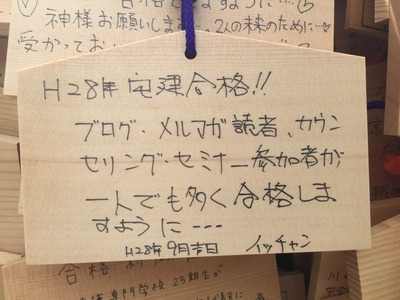 神様お願いします…2人の未来のために…♡
受かってお
H28年 宅建合格!!
ブログ・メルマガ読者、カウン
セリング・セミナー参加者が
一人でも多く合格しま
すように---
H28年 9月吉日 イッチャン
合格
専門学校 23期生が